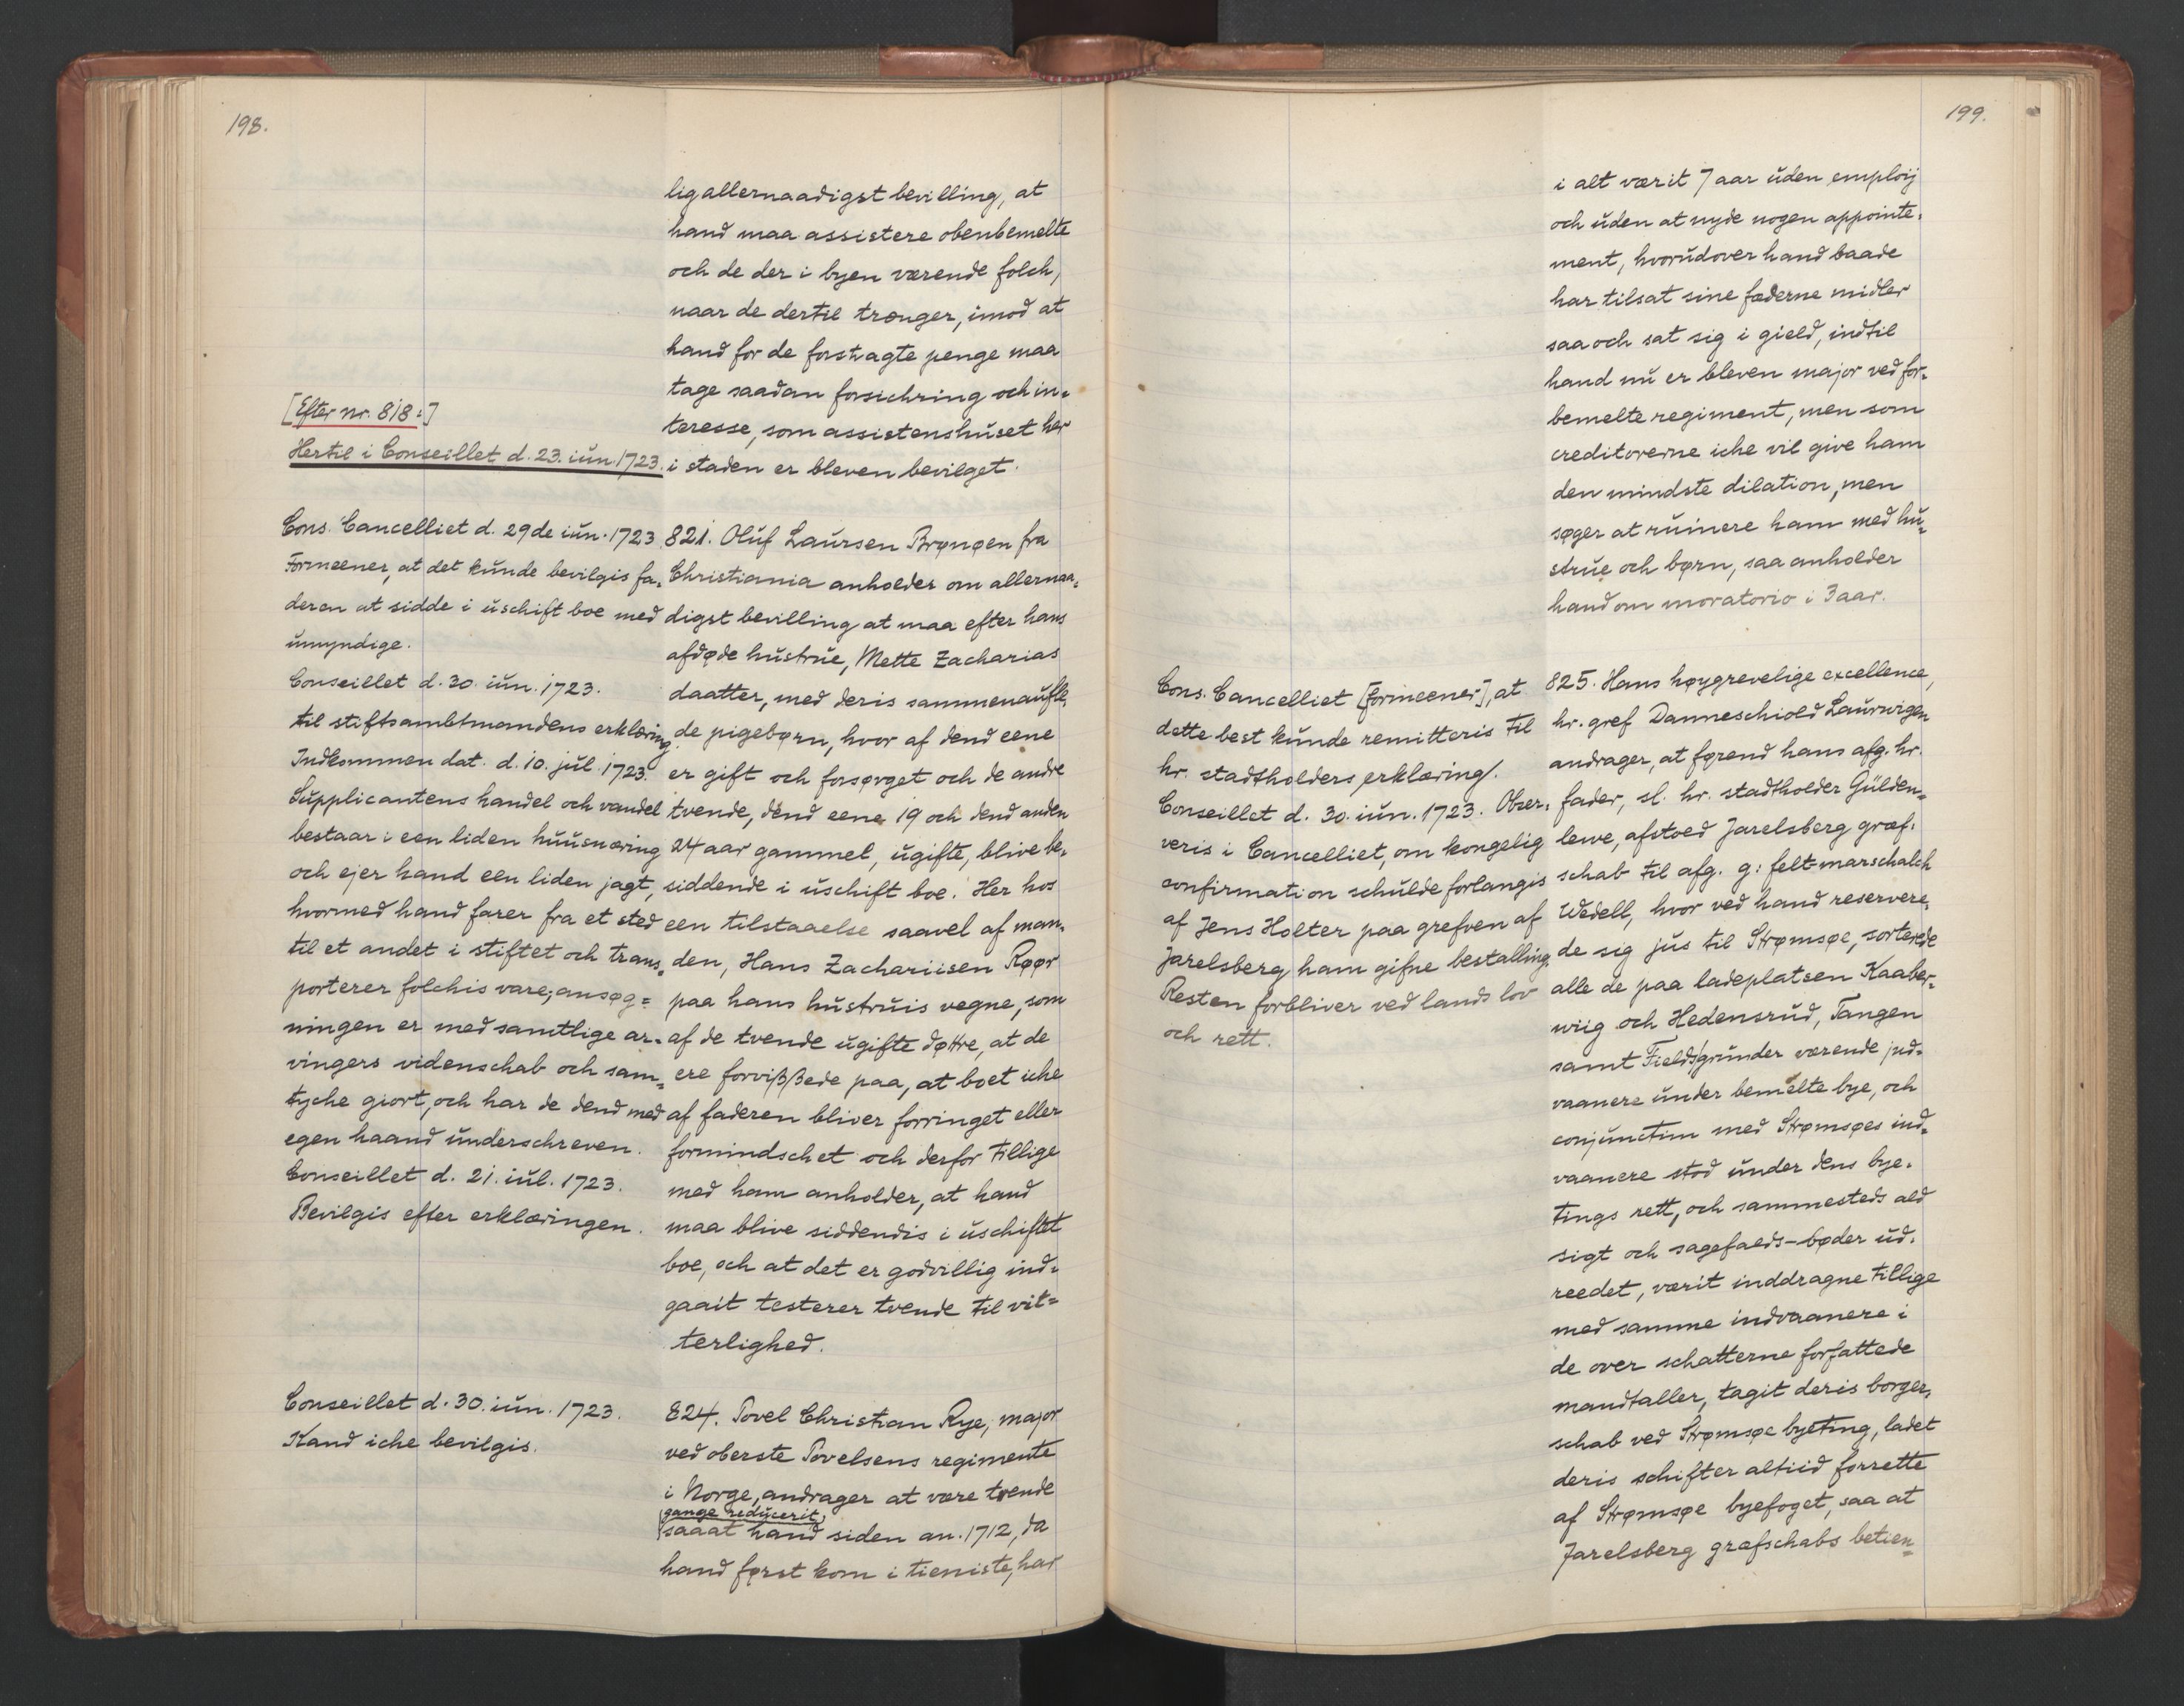 198.
ligallernaadigst bevilling, at
hand maa assistere obenbemelte
och de der i byen værende folch,
naar de dertil trænger, imod at
hand for de forstragte penge maa
tage saadan forsichring och in-
teresse, som assistenshuset her
i staden er bleven bevilget.
[Efter nr. 818:]
Hertil i Conseillet d. 23. iun. 1723.
Cons. Cancelliet d. 29de iun. 1723
Formeener, at det kunde bevilgis fa-
deren at sidde i uschift boe med
umyndige.
Conseillet d. 30. iun. 1723.
til stiftsambtmandens erklæring
Indkommen dat. d. 10. jul. 1723.
Supplicantens handel och vandel
bestaar i een liden huusnæring
och ejer hand een liden jagt,
hvormed hand farer fra et sted
til et andet i stiftet och trans-
porterer folchis vare; ansøg=
ningen er med samtlige ar-
vingers videnschab och sam-
tyche giort, och har de dend med
egen haand underschreven.
Conseillet d. 21. iul. 1723.
Bevilgis efter erklæringen.
821. Oluf Laursen Brønøen fra
Christiania anholder om allernaa-
digst bevilling at maa efter hans
afdøde hustrue, Mette Zacharias
daatter, med deris sammenaufle-
de pigebørn, hvor af dend eene
er gift och forsørget och de andre
tvende, dend eene 19 och dend anden
24 aar gammel, ugifte, blive be-
siddende i uschift boe. Her hos
een tilstaaelse saavel af man-
den, Hans Zachariisen Røør
paa hans hustruis vegne, som
af de tvende ugifte døttre, at de
ere forvißßede paa, at boet iche
af faderen bliver forringet eller
formindschet och derfor tillige
med ham anholder, at hand
maa blive siddendis i uschiftet
boe, och at det er godvillig ind-
gaait testerer tvende til vit=
terlighed.
Conseillet d. 30. iun. 1723.
Kand iche bevilgis.
824. Povel Christian Rye, major
ved oberste Povelsens regimente
i Norge, andrager at være tvende
gange reducerit,
saaat hand siden an. 1712, da
hand først kom i tieniste, har
199.
i alt værit 7 aar uden employ
och uden at nyde nogen appointe-
ment, hvorudover hand baade
har tilsat sine fæderne midler
saa och sat sig i gield, indtil
hand nu er bleven major ved for-
bemelte regiment, men som
creditorerne iche vil give ham
den mindste dilation, men
søger at ruinere ham med hu-
strue och børn, saa anholder
hand om moratorio i 3 aar.
Cons. Cancelliet [formeener], at
dette best kunde remitteris til
hr. stadtholders erklæring/.
Conseillet d. 30. iun. 1723. Obser-
veris i Cancelliet, om kongelig
confirmation schulde forlangis
af Jens Holter paa grefven af
Jarelsberg ham gifne bestalling.
Resten forbliver ved lands lov
och rett.
825. Hans høygrevelige excellence,
hr. gref Danneschiold Laurwigen
andrager, at førend hans afg. hr.
fader, sl. hr. stadtholder Gülden-
lewe, afstoed Jarelsberg græf-
schab til afg. g: felt-marschalch
Wedell, hvor ved hand reservere-
de sig jus til Strømsøe, sorterede
alle de paa ladeplatsen Kaaber-
wiig och Hedensrud, Tangen
samt Fields/grunder værende ind-
vaanere under bemelte bye, och
conjunctim med Strømsøes ind-
vaanere stod under dens bye-
tings rett, och sammesteds ald
sigt och sagefalds-bøder ud-
reedet, værit inddragne tillige
med samme indvaanere i
de over schatterne forfattede
mandtaller, tagit deris borger-
schab ved Strømsøe byeting, ladet
deris schifter altiid forrette
af Strømsøe byefoget, saa at
Jarelsberg græfschabs betien=